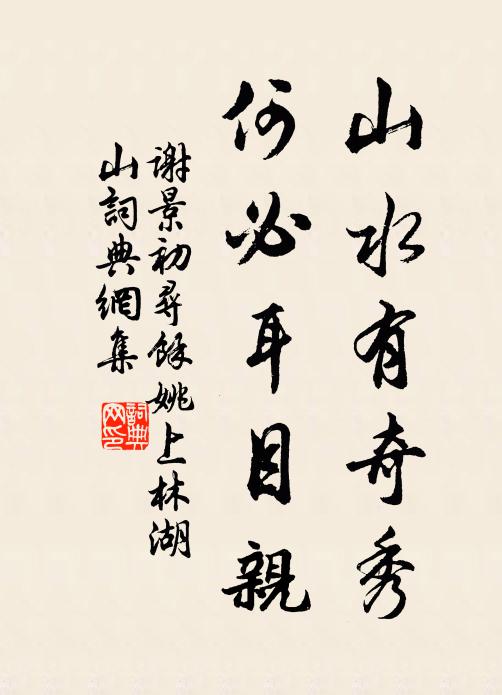 山水有奇秀
何必耳目親
谢景初尋餘姚上林湖
山詞典網集
詞典
网印